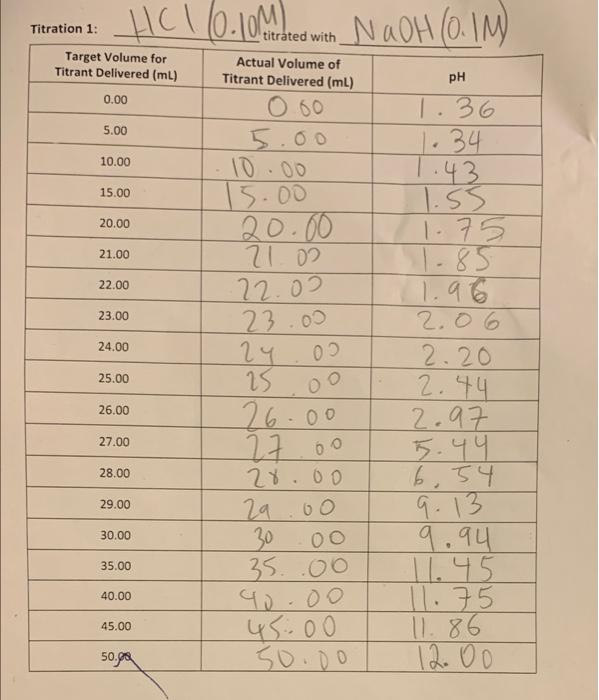 Titration 1: HCl (0.10M) titrated with NaOH (0.1M)
Target Volume for Titrant Delivered (mL) Actual Volume of Titrant Delivered (mL) pH
0.00 0.00 1.36
5.00 5.00 1.34
10.00 10.00 1.43
15.00 15.00 1.55
20.00 20.00 1.75
21.00 21.00 1.85
22.00 22.00 1.96
23.00 23.00 2.06
24.00 24.00 2.20
25.00 25.00 2.44
26.00 26.00 2.97
27.00 27.00 5.44
28.00 28.00 6.54
29.00 29.00 9.13
30.00 30.00 9.94
35.00 35.00 11.45
40.00 40.00 11.75
45.00 45.00 11.86
50.00 50.00 12.00